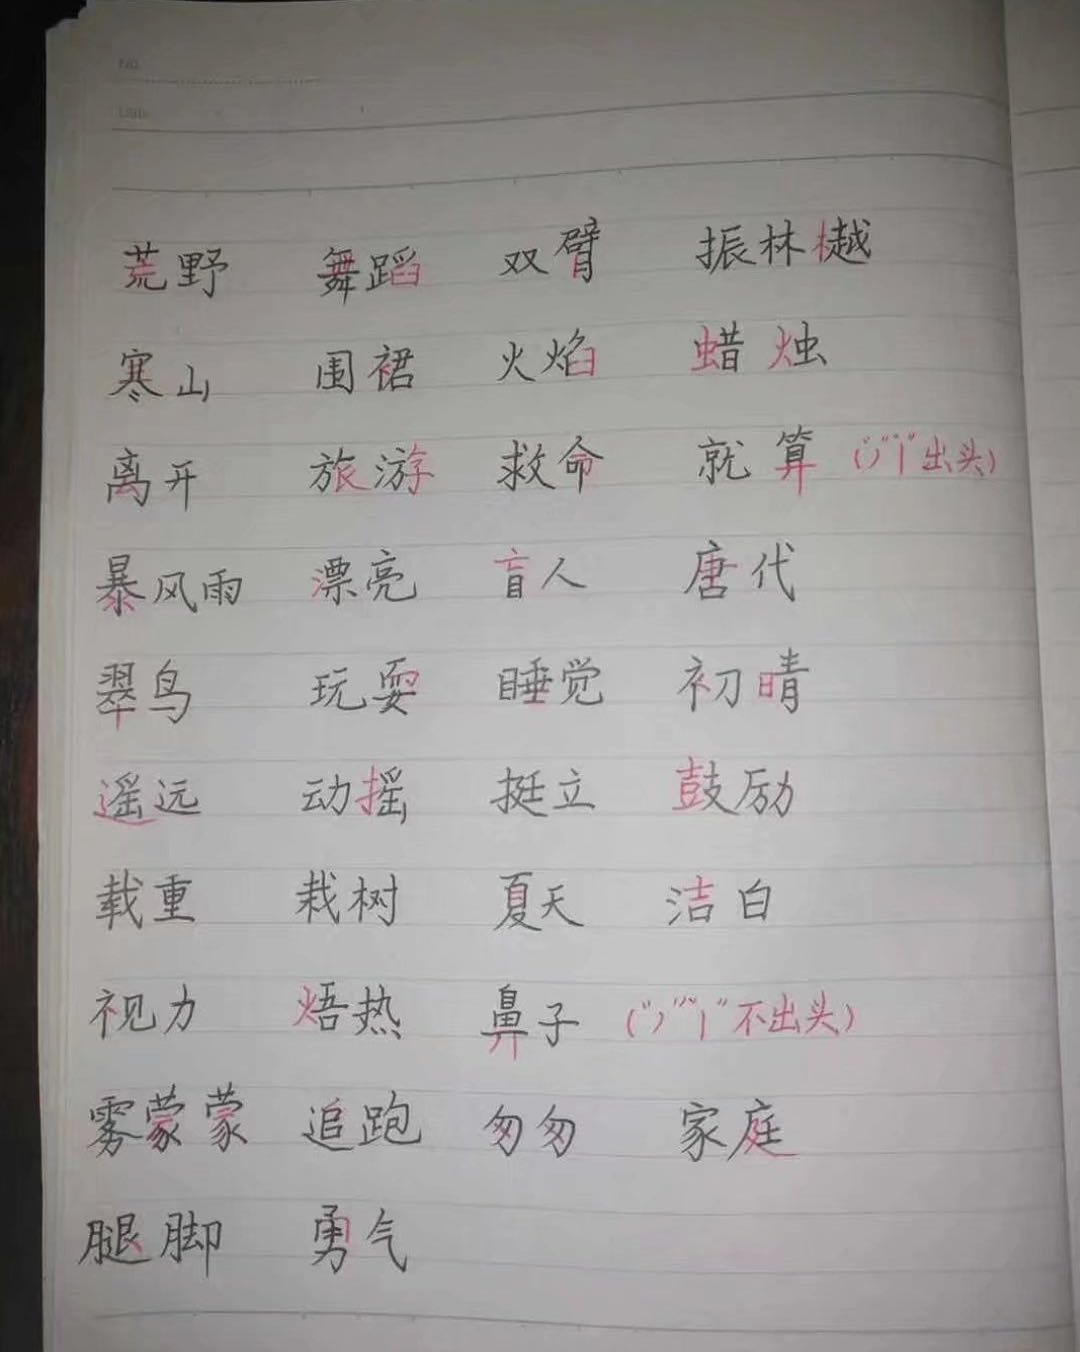 No.
Date
荒野 舞蹈 双臂 振林樾
寒山 围裙 火焰 蜡烛
离开 旅游 救命 就算 ("丿""丨"出头)
暴风雨 漂亮 盲人 唐代
翠鸟 玩耍 睡觉 初晴
遥远 动摇 挺立 鼓励
载重 栽树 夏天 洁白
视力 焐热 鼻子 ("丿""丨"不出头)
雾蒙蒙 追跑 匆匆 家庭
腿脚 勇气